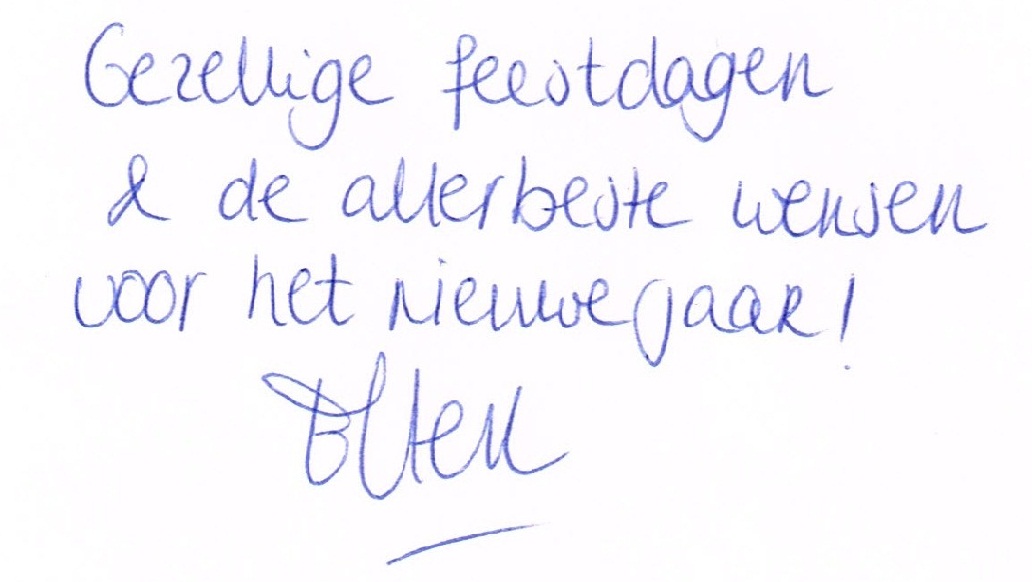 Gezellige feestdagen
& de allerbeste wensen
voor het nieuwe jaar!
Ellen